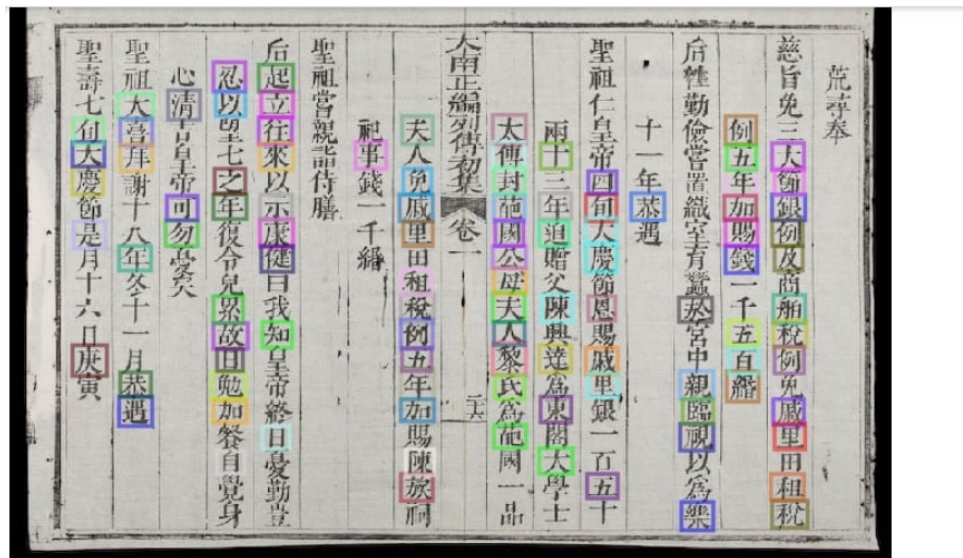 荒尋奉
慈旨免三大節銀例及商舶稅例免戚里田租稅
例五年加賜錢一千五百緡
后性勤儉嘗置織室育蠶於宮中親臨視以為樂
十一年恭遇
聖祖仁皇帝四旬大慶節恩賜戚里銀一百五十
兩十三年追贈父陳興達為東閣大學士
太傅封葩國公母夫人黎氏為葩國一品
大南正編列傳初集 卷一 二六
夫人免戚里田租稅例五年加賜陳族祠
祀事錢一千緡
聖祖嘗親詣侍膳
后起立往來以示康健曰我知皇帝終日憂勤豈
忍以望七之年復令兒累故日勉加餐自覺身
心清吉皇帝可勿憂矣
聖祖大喜拜謝十八年冬十一月恭遇
聖壽七旬大慶節是月十六日庚寅